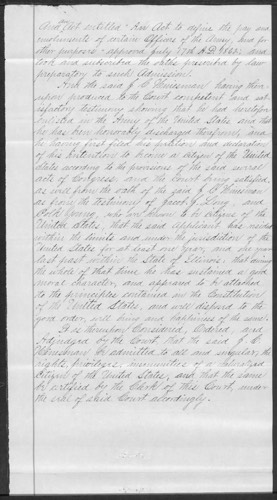 And Act entitled "An Act to define the pay and
emoluments of certain officers of the Army, and for
other purposes" approved July 17th A.D. 1862, and
took and subscribed the oaths prescribed by law
preparatory to said Admission.
And the said J. C. Heussman having there
upon produced to the Court competent and sat
isfactory testimony showing that he had heretofore
enlisted in the Army of the United States and that
he has been honorably discharged therefrom, and
he having first filed his petition and declaration
of his intention to become a citizen of the United
States according to the provisions of the said several
acts of Congress, and the Court being satisfied
as well from the oath of the said J. C. Heussman
as from the testimony of Jacob J. Long, and
who are known to be citizens of the
United States, that the said Applicant has resided
within the limits and under the jurisdiction of the
United States for at least one year, and one year
last past within the State of Illinois, that during
the whole of that time he has sustained a good
moral character, and appeared to be attached
to the principles contained in the Constitution
of the United States, and well disposed to the
good order, well being and happiness of the same.
It is therefore Considered, Ordered, and
Adjudged by the Court, that the said J. C.
Heussman be admitted to all and singular, the
rights, privileges, immunities of a naturalized
Citizen of the United States, and that the same
be certified by the Clerk of this Court, under
the seal of said Court accordingly.